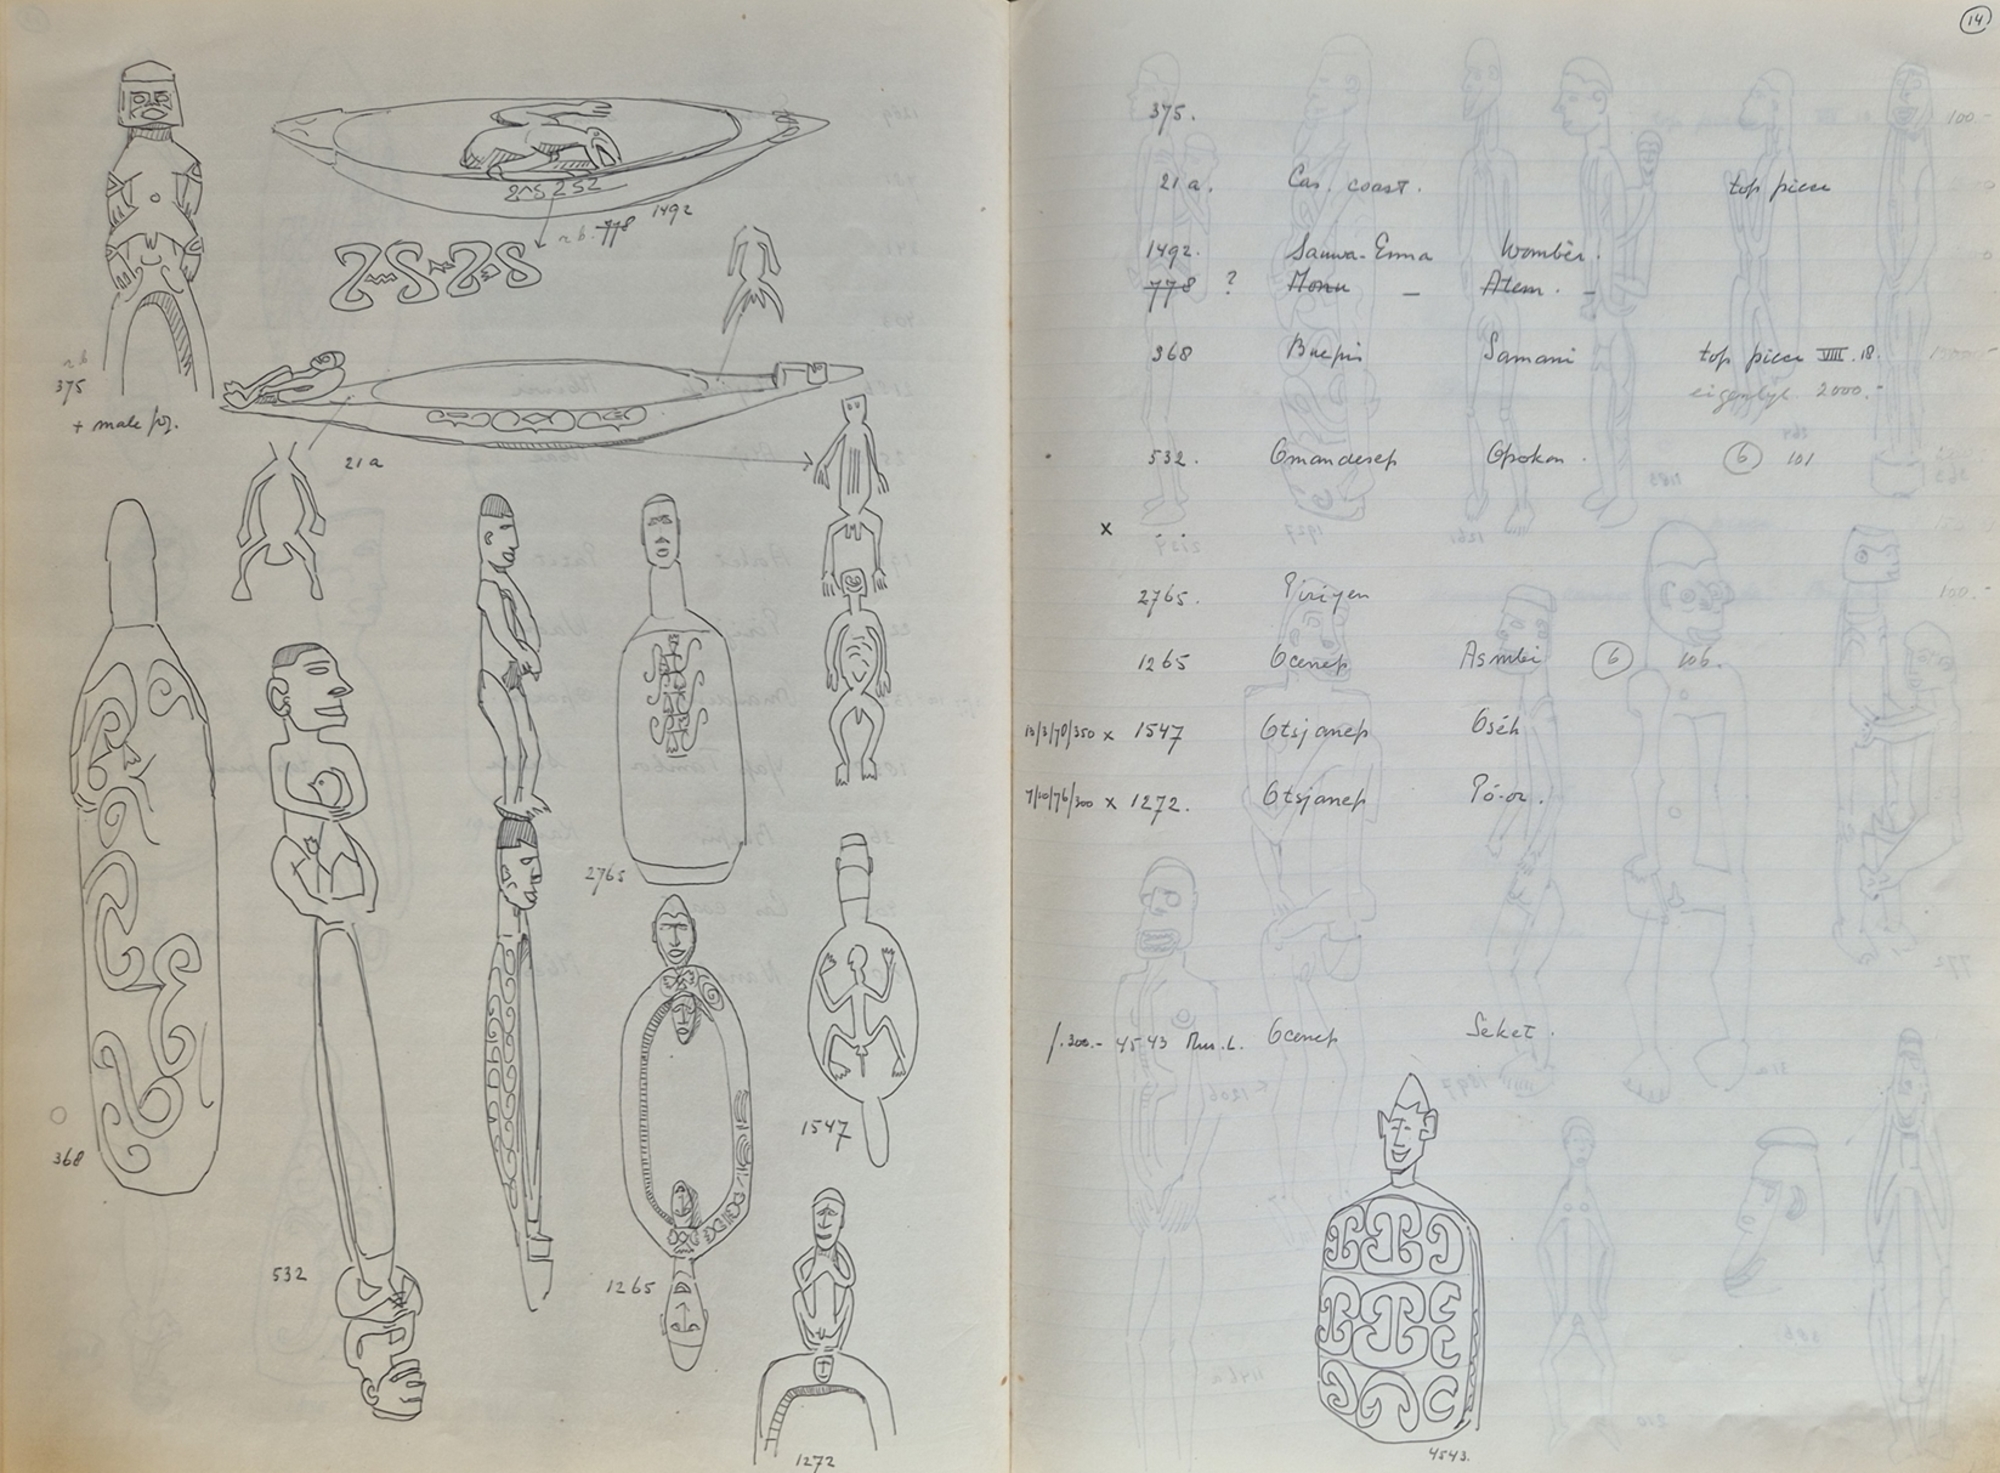 14
1492
n.b. 778
n.b.
375
+ male fig.
21 a
2765
368
1547
532
1265
1272
375.
21 a. Cas. coast. top piece
1492. Sauwa-Erma Wombèr.
778 ? Monu – Atem. –
368 Buepis Samani top piece VIII. 18.
eigentyl. 2000.-
532. Omandesep Opokon. 6 101
x
2765. Pirijen
1265 Ocenep Asmbi 6 106.
10/3/70/350 x 1547 Otsjanep Oséh
7/10/76/300 x 1272. Otsjanep Pó-or.
f. 300.- 4543 Mus. L. Ocenep Seket.
4543.